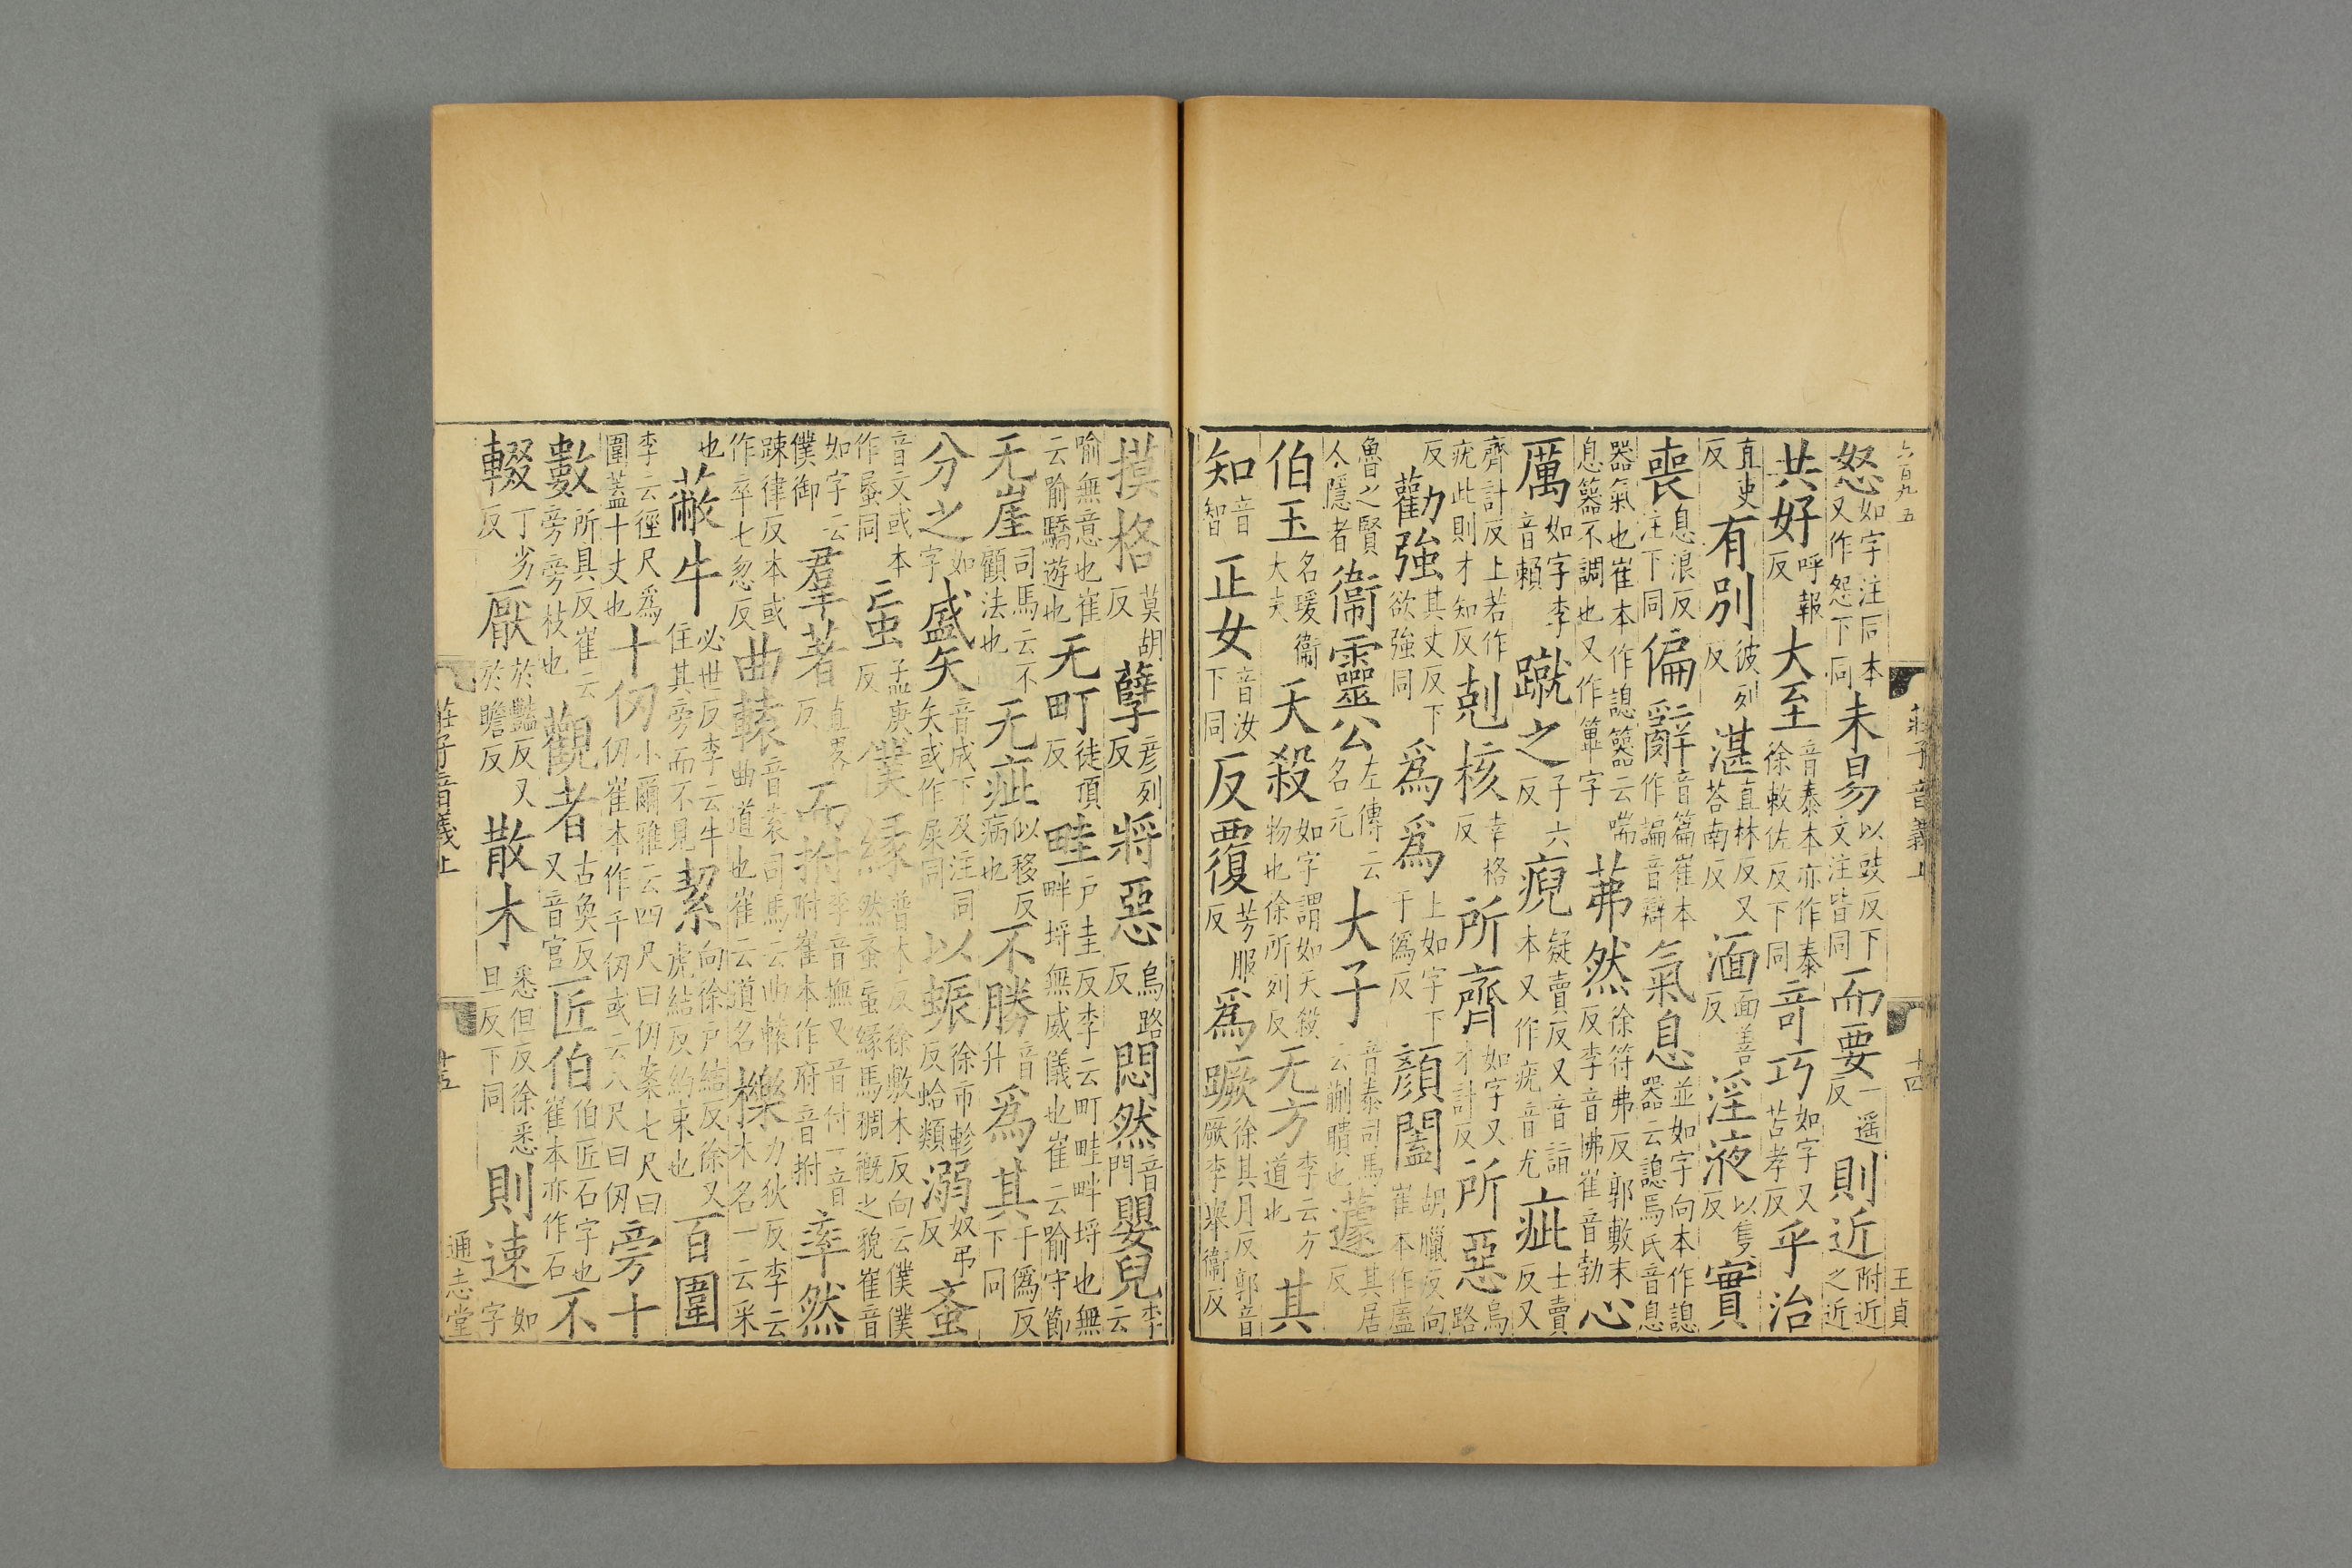 六百九五 莊子音義上 十四 王貞
怒如字注同本又作怨下同未易以豉反下文注皆同而要一遥反則近附近之近
共好呼報反大至音泰本亦作泰徐敕佐反下同奇巧如字又苦孝反乎治
直吏反有別彼列反湛直林反又荅南反湎面善反淫液以隻反實
喪息浪反注下同偏辭音篇崔本作諞音辯氣息並如字向本作諰器云諰馬氏音息
器氣也崔本作諰云喘息不調也又作篳字茀然徐符弗反郭敷末反李音怫崔音勃心
厲如字李音賴蹴之子六反疑賣反又音詣本又作疣音尤疵士賣反又
齊計反上若作疣此則才知反剋核幸格反所齊如字又才計反所惡烏路
反勸強其丈反下欲強同爲爲上如字下于僞反顔闔胡臘反向崔本作盧
魯之賢人隱者衞靈公左傳云名元大子音泰司馬云蒯聵也蘧其居反
伯玉名瑗衞大夫天殺如字謂如天殺物也徐所列反无方李云方道也其
知音智正女音汝下同反覆芳服反爲蹶徐其月反郭音厥李舉衞反
摸格莫胡反孽彦列反將惡烏路反悶然音門嬰兒李云
喻無意也崔云喻驕遊也无町徒頂反畦户圭反李云町畦畔埒也無畔埒無威儀也崔云喻守節
无崖司馬云不顧法也无疵似移反病也不勝音升爲其于僞反下同
分之如字盛矢音成下及注同矢或作屎同以蜄徐市軫反蛤類溺奴弔反蚉
音文或本作䘇同䖟孟庚反僕縁普木反徐敷木反向云僕僕然蚉䖟縁馬稠穊之貌崔音
如字云僕御羣著直畧反而拊李音撫又音付一音附崔本作府音拊率然
疎律反本或作卒七忽反曲轅音袁司馬云曲轅曲道也崔云道名櫟力狄反李云木名一云采
也蔽牛必世反李云牛住其旁而不見絜向徐户結反徐又虎結反約束也百圍
李云徑尺爲圍蓋十丈也十仞小爾雅云四尺曰仞案七尺曰仞崔本作千仞或云八尺曰仞旁十
數所具反崔云旁旁枝也觀者古奐反又音官匠伯伯匠石字也崔本亦作石不
輟丁劣反厭於豔反又於瞻反散木悉但反徐悉旦反下同則速如字
莊子音義上 十五 通志堂